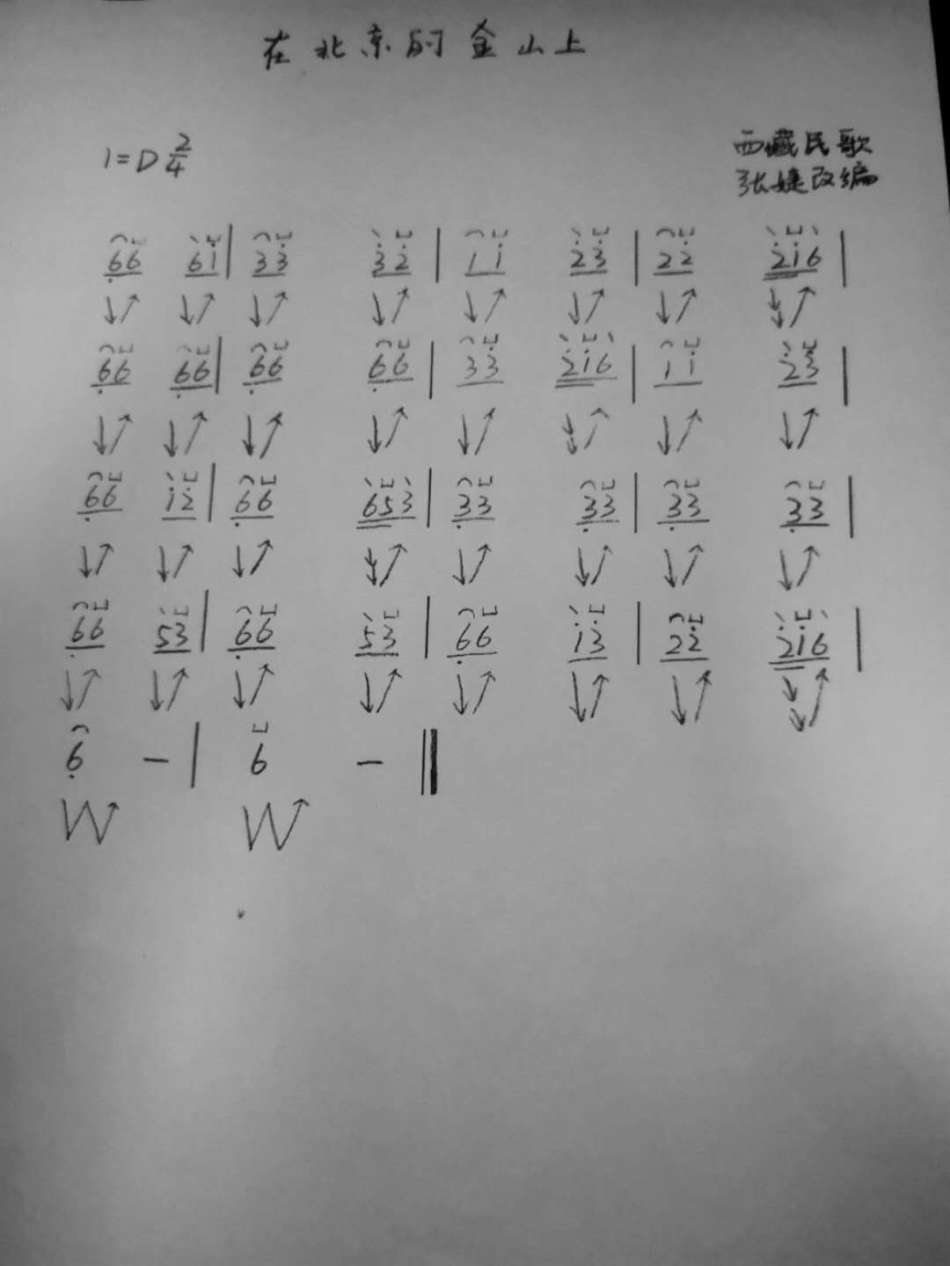 在北京的金山上
1=D 2/4
西藏民歌
张婕改编
6̣6 6i̇ | 33̇ 3̇2̇ | 1i̇ 2̇3̇ | 22̇ 2̇i̇6 |
6̣6 6̣6 | 6̣6 6̣6 | 33̇ 2̇i̇6 | 1i̇ 2̇3̇ |
6̣6 i̇2̇ | 6̣6 653 | 3̣3 3̣3 | 3̣3 3̣3 |
6̣6 53 | 6̣6 53 | 6̣6 i̇3̇ | 22̇ 2̇i̇6 |
6̣ － | 6 － ‖